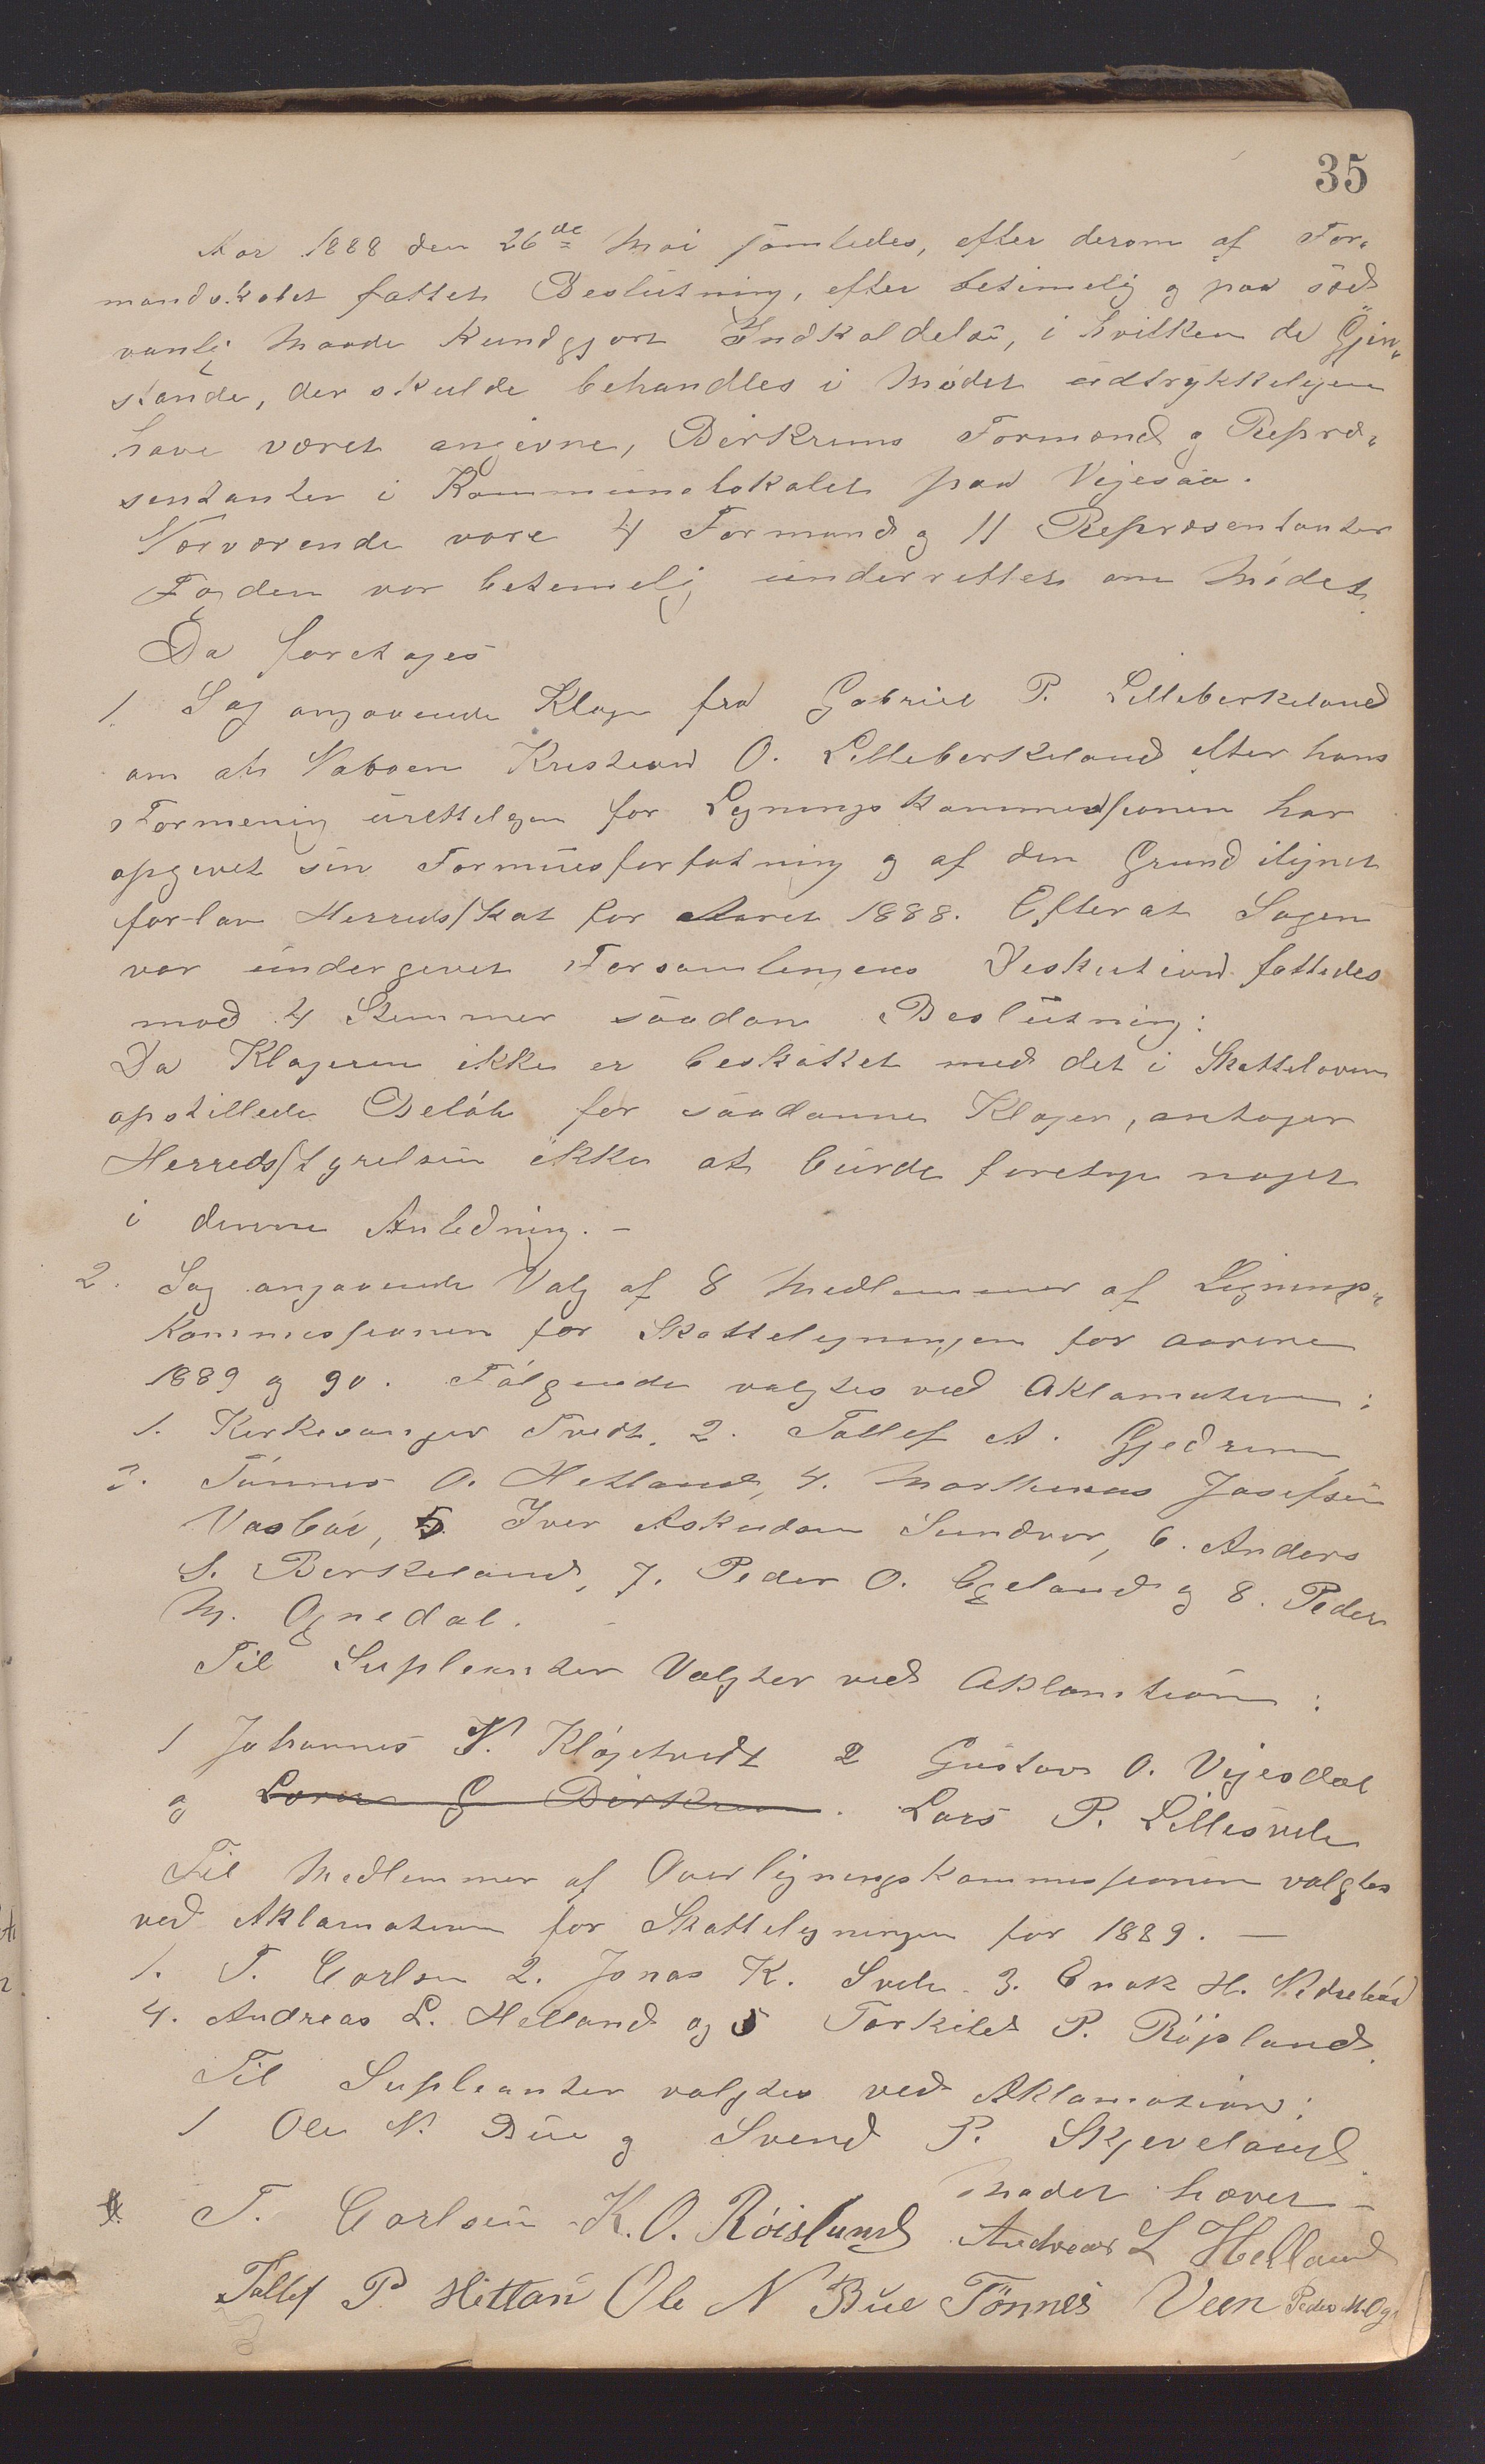 35
Aar 1888 den 26de Mai samledes, efter derom af For-
mandskabet fattet Beslutning, efter betimelig og paa sæd-
vanlig Maade kundgjort Indkaldelse, i hvilken de Gjen-
stande, der skulde behandles i Mødet udtrykkeligen
have været angivne, Birkrems Formænd og Repræ-
sentanter i Kommunelokalet paa Vigesaa.
Nærværende vare 4 Formænd og 11 Repræsentanter
Fogden var betimelig underrettet om Mødet.
Da foretoges
1 Sag angaaende Klage fra Gabriel P. Lilleberkeland
om at Naboen Kristian O. Lilleberkeland efter hans
Formening urettelgen for Ligningskommissionen har
opgivet sin Formuesforfatning og af den Grund ilignet
for lav Herredsskat for Aaret 1888. Efterat Sagen
var undergivet Forsamlingens Diskution fattedes
mod 4 Stemmer saadan Beslutning:
Da Klageren ikke er beskattet med det i Skatteloven
opstillede Beløb for saadanne Klager, antager
Herredsstyrelsen ikke at burde foretage noget
i denne Anledning. -
2. Sag angaaende Valg af 8 Medlemmer af Lignings-
kommissionen for Skatteligningen for Aarene
1889 og 90. Følgende valgtes ved Aklamation:
1. Kirkesanger Tvedt, 2. Tallef A. Gjedrem,
3. Tønnes O. Hetland, 4. Marthinus Josefsen
Vasbøe, 5. Iver Askildsen Sundvor, 6. Anders
S. Berkeland, 7. Peder O. Egeland og 8. Peder
M. Ognedal. -
Til Supleanter Valgtes ved Aklamation:
1 Johannes N. Kløgetvedt 2 Gustav O. Vigesdal
og Lars G Birkrem. Lars P. Lillesvele
Til Medlemmer af Overligningskommissionen valgtes
ved Aklamation for Skatteligningen for 1889. —
1. T. Carlsen 2. Jonas K. Svele 3. Enok H. Nedrebøe
4. Andreas L. Helland og 5 Torkild P. Røysland.
Til Supleanter valgtes ved Aklamation:
1 Ole N. Bue og Svend P. Skjeveland.
Mødet hævet -
T. Carlsen K. O. Röislund Andreas L Helland
Tallef P. Hetland Ole N Bue Tönnes Veen Peder M. Og